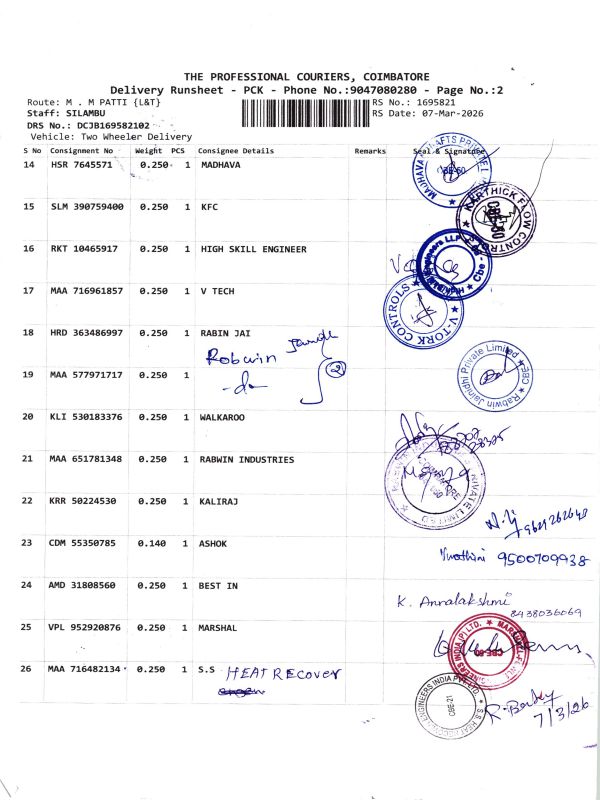 THE PROFESSIONAL COURIERS, COIMBATORE
Delivery Runsheet - PCK - Phone No.:9047080280 - Page No.:2
Route: M . M PATTI {L&T}
RS No.: 1695821
Staff: SILAMBU
RS Date: 07-Mar-2026
DRS No.: DCJB169582102
Vehicle: Two Wheeler Delivery
S No Consignment No Weight PCS Consignee Details Remarks Seal & Signature
14 HSR 7645571 0.250 1 MADHAVA
CBE-60
15 SLM 390759400 0.250 1 KFC
KARTHICK FLOW CONTROL
CBE-60
16 RKT 10465917 0.250 1 HIGH SKILL ENGINEER
17 MAA 716961857 1 0.250 1 V TECH
V-TORK CONTROLS
18 HRD 363486997 0.250 1 RABIN JAI
Robwin Jainidhi
19 MAA 577971717 0.250 1
-do-
2
Rabwin Jainidhi Private Limited
CBE
20 KLI 530183376 0.250 1 WALKAROO
21 MAA 651781348 0.250 1 RABWIN INDUSTRIES
PRIVATE LIMITED
22 KRR 50224530 0.250 1 KALIRAJ
23 CDM 55350785 0.140 1 ASHOK
9500709938
24 AMD 31808560 0.250 1 BEST IN
K. Annalakshmi
8438036069
25 VPL 952920876 0.250 1 MARSHAL
CBE-60
26 MAA 716482134 0.250 1 S.S HEAT RECOVER
CBE-21
7/3/26